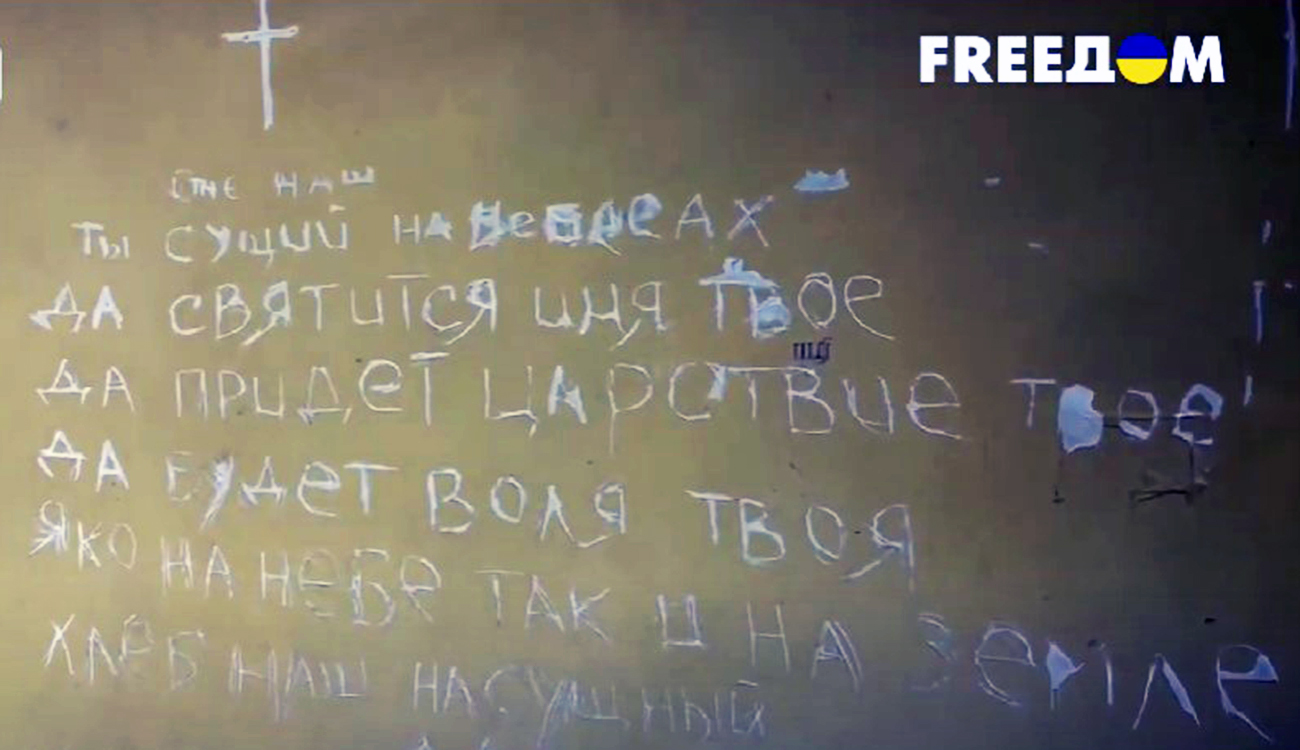 FREEДOM
ОТЧЕ НАШ
ТЫ СУЩИЙ НА НебереАХ
ДА СВЯТИТСЯ ИМЯ ТВОЕ
ДА ПРИДЕТ ЦАРСТВИЕ ТВОЕ
ДА БУДЕТ ВОЛЯ ТВОЯ
ЯКО НА НЕБЕ ТАК И НА ЗЕМЛЕ
ХЛЕБ НАШ НАСУЩНЫЙ